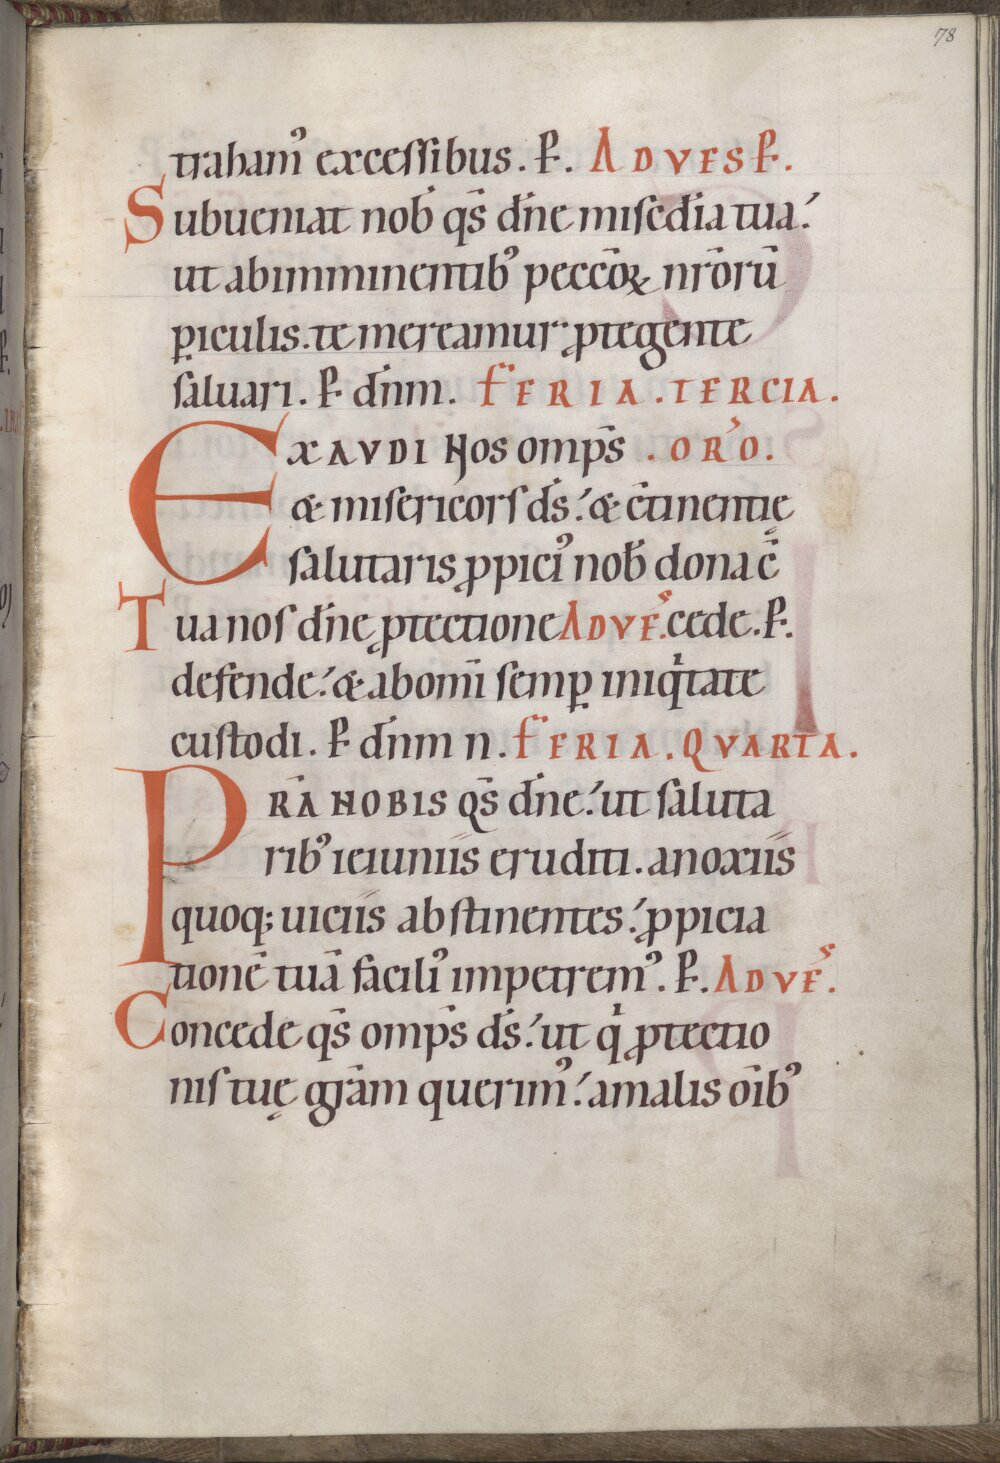 78
traham᾽ excessibus. P. AD VESP.
Subueniat nob̄ qs̄ dn̄e mised̄ia tua:
ut ab imminentib᾽ peccōꝝ nr̄orū
ꝑiculis. te mereamur ꝓtegente
saluari. P. dn̄m. FERIA. TERCIA.
EXAVDI NOS omp̄s . ORO᾽.
& misericors ds̄: & c̄tinentię
salutaris ꝓpici᾽ nob̄ dona c̄
Tua nos dn̄e ꝓtectione AD VES. cede. P.
defende: & ab om̄i semꝑ iniqͥtate
custodi. P. dn̄m n. FERIA. QVARTA.
PRA̅ NOBIS qs̄ dn̄e: ut saluta
rib᾽ ieiuniis eruditi. a noxiis
quoq; uiciis abstinentes: ꝓpicia
tionē tuā facili᾽ impetrem᾽. P. AD VES.
Concede qs̄ omp̄s ds̄: ut qͥ ꝓtectio
nis tuę gr̄am querim᾽: a malis om̄ib᾽